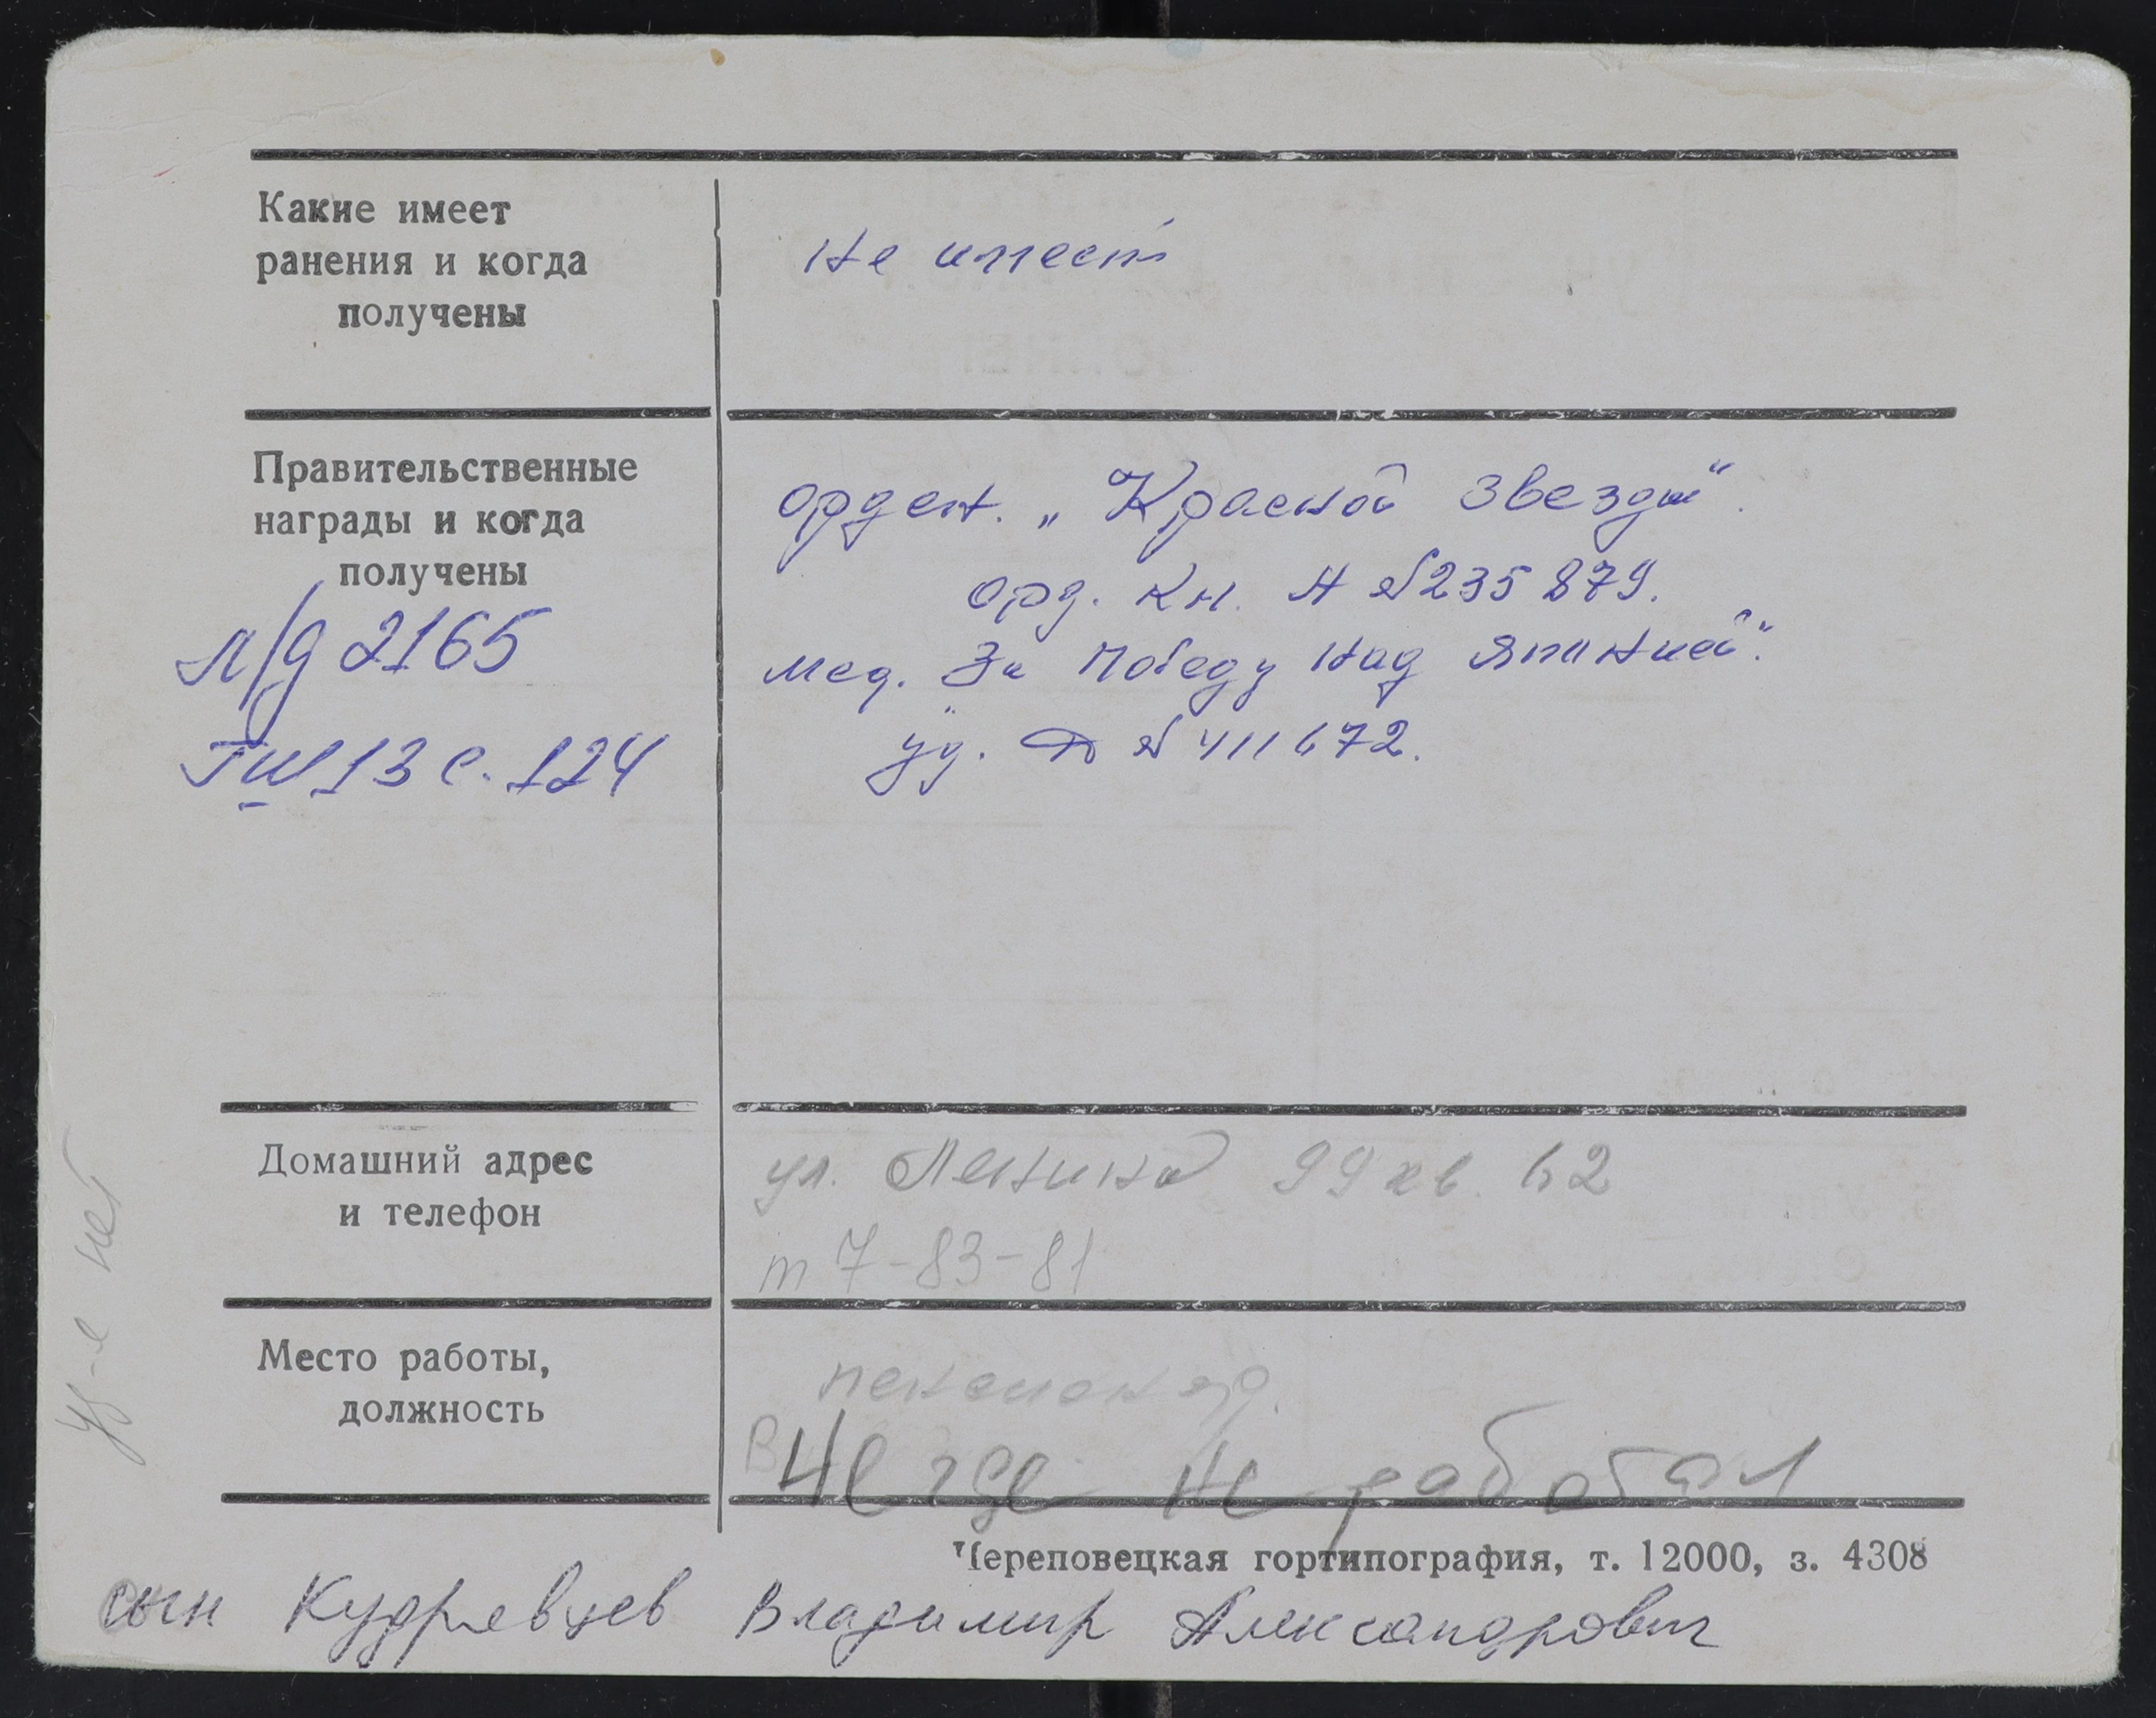 Какие имеет
ранения и когда
получены
не имеет
Правительственные
награды и когда
получены
л/д 2165
орден. „Красной Звезды".
орд. кн. А №235879.
мед. „За Победу над Японией".
уд. Д № 411672.
Домашний адрес
и телефон
ул. Ленина 99 кв. 62
т 7-83-81
Место работы,
должность
пенсионер.
Не где не работал
Череповецкая гортипография, т. 12000, з. 4308
сын Кудрявцев Владимир Александрович
уд-е нет